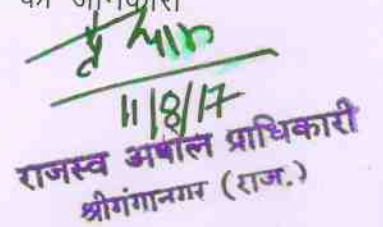 की जानकारी
11/8/17
राजस्व अपील प्राधिकारी
श्रीगंगानगर (राज.)